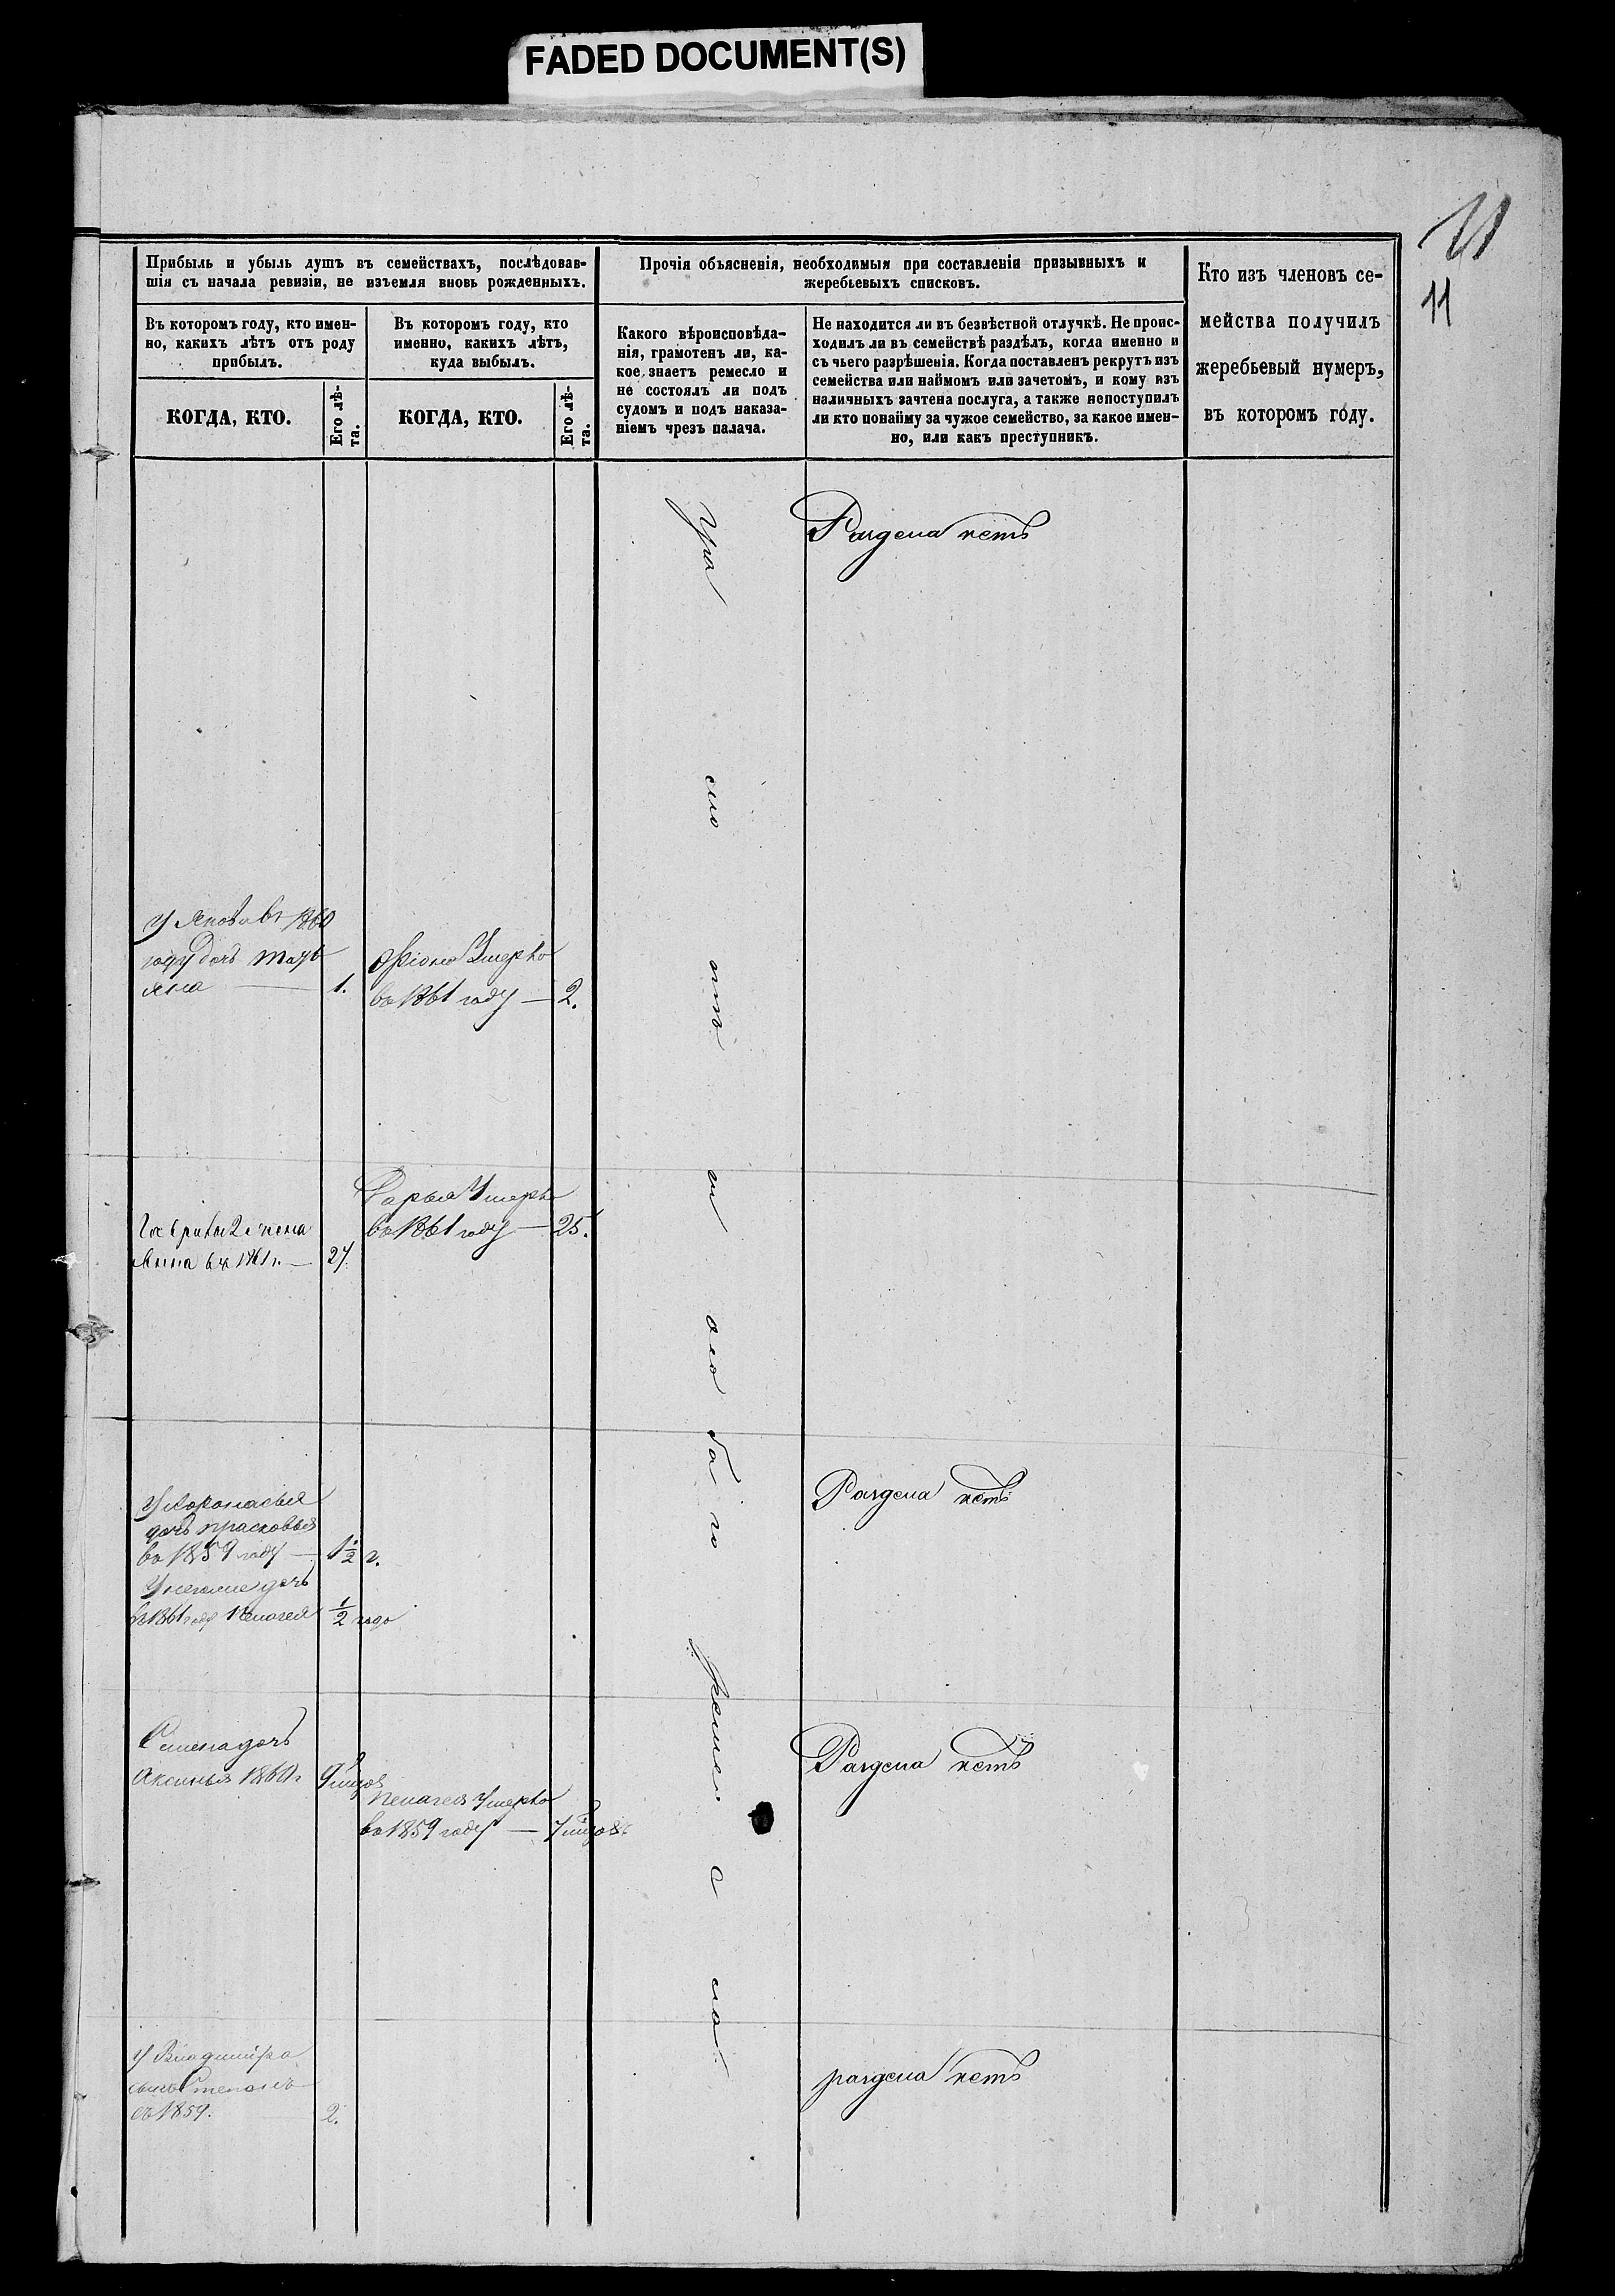 FADED DOCUMENT(S)
11
Прибыль и убыль душъ въ семействахъ, послѣдовав-
шія съ начала ревизіи, не изъемля вновь рожденныхъ.
Въ которомъ году, кто имен-
но, какихъ лѣтъ отъ роду
прибылъ.
КОГДА, КТО.
Его лѣ-
та.
Въ которомъ году, кто
именно, какихъ лѣтъ,
куда выбылъ.
КОГДА, КТО.
Его лѣ-
та.
Прочія объясненія, необходимыя при составленіи призывныхъ и
жеребьевыхъ списковъ.
Какого вѣроисповѣда-
нія, грамотенъ ли, ка-
кое знаетъ ремесло и
не состоялъ ли подъ
судомъ и подъ наказа-
ніемъ чрезъ палача.
Не находится ли въ безвѣстной отлучкѣ. Не проис-
ходилъ ли въ семействѣ раздѣлъ, когда именно и
съ чьего разрѣшенія. Когда поставленъ рекрутъ изъ
семейства или наймомъ или зачетомъ, и кому изъ
наличныхъ зачтена послуга, а также непоступилъ
ли кто понайму за чужое семейство, за какое имен-
но, или какъ преступникъ.
Кто изъ членовъ се-
мейства получилъ
жеребьевый нумеръ,
въ которомъ году.
Раздела нетъ
У Якова въ 1860
году дочь Тать
яна — 1.
Умерла
въ 1861 году — 2.
Дарья Умерла
въ 1861 году — 25.
Гаврилы 2я жена
Анна въ 1861 г. — 27.
дочь Прасковья
въ 1859 году — 1 1/2 г.
дочь
въ 1861 году Пелагея 1/2 года
Раздела нетъ
Семена дочь
Аксинья 1860 г. 9
Пелагея Умерла
въ 1859 году — 7
Раздела нетъ
У Владимира
сынъ Степанъ
въ 1859. 2.
раздела нетъ